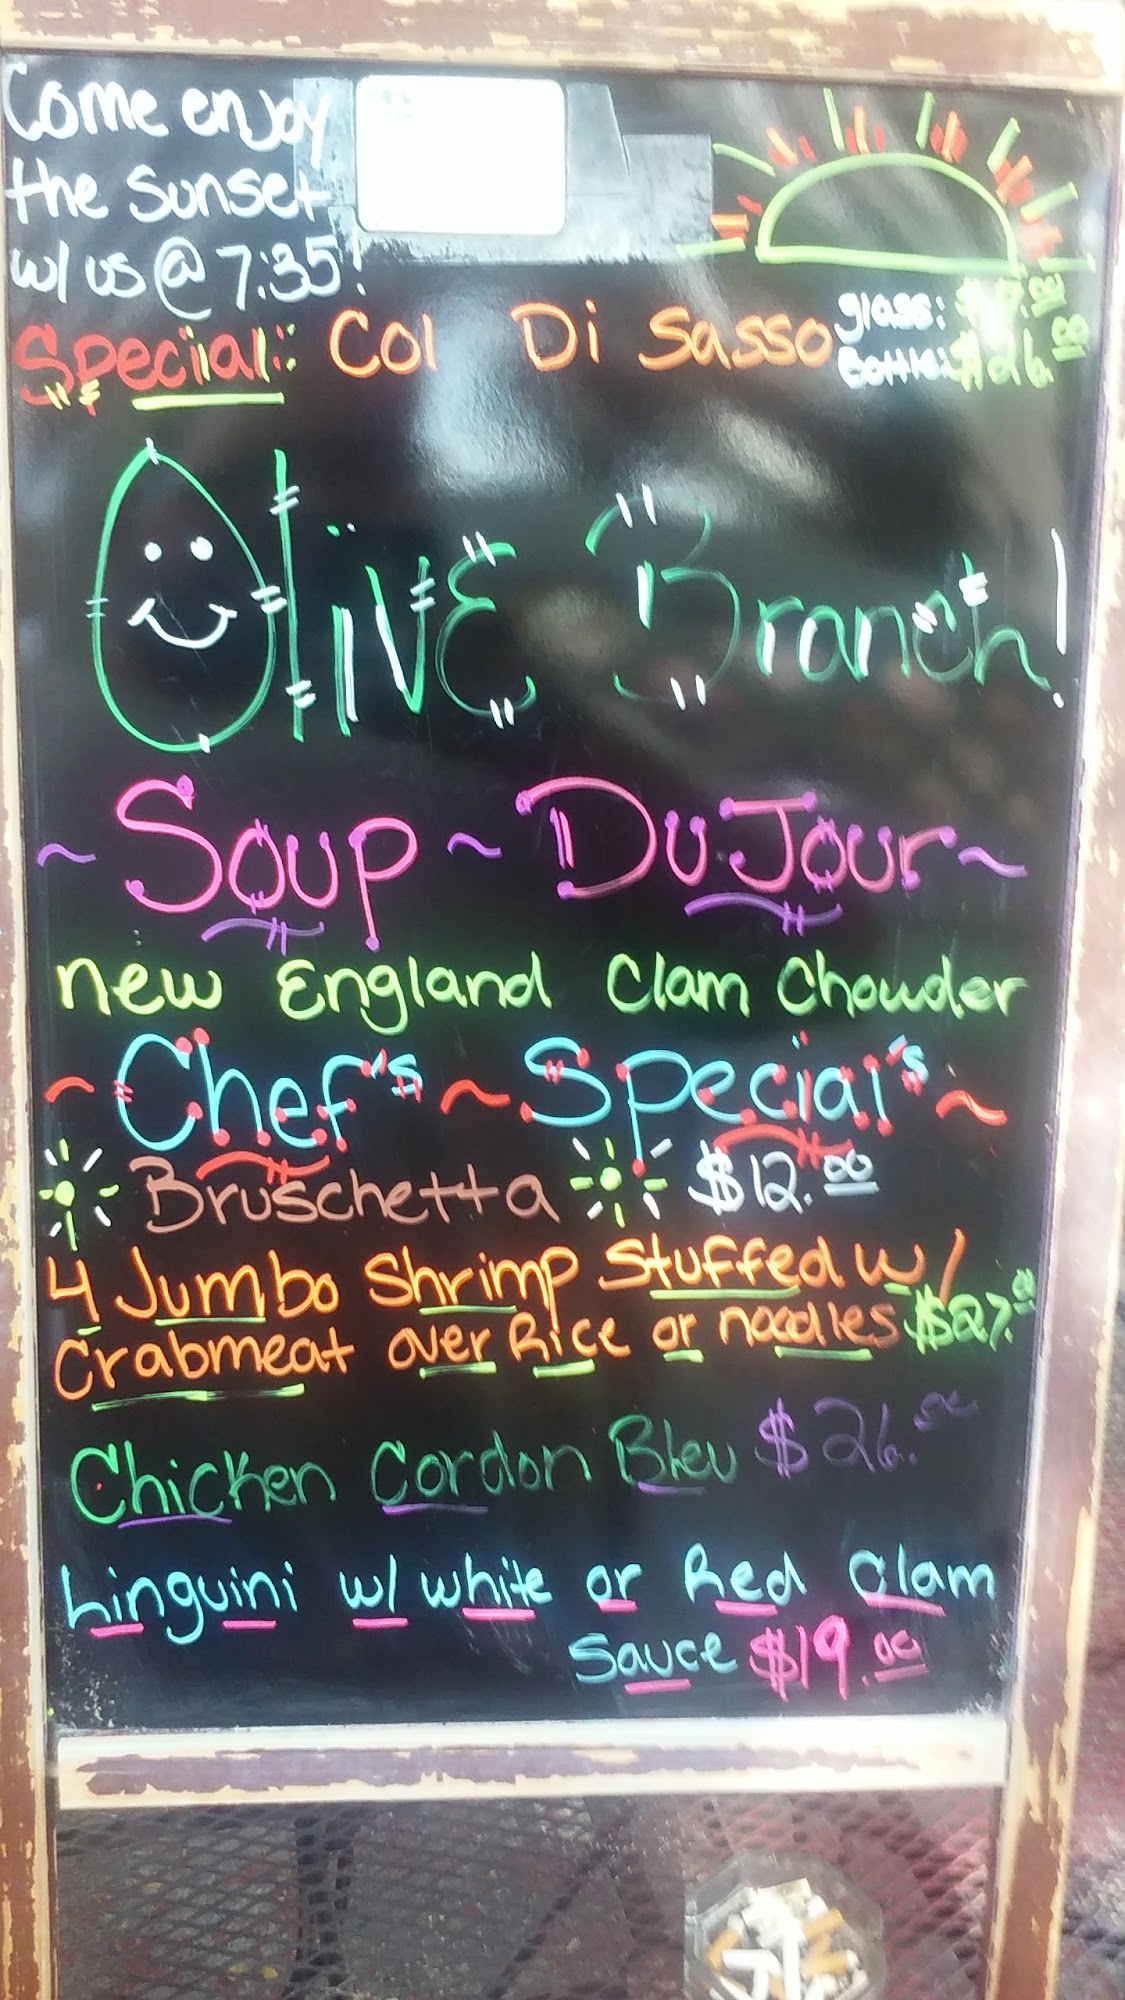 Come enjoy
the sunset
w/ us @ 7:35!
Special: Col Di Sasso
glass:
Bottle: $26.00
Olive Branch!
~ Soup ~ Du Jour ~
new England Clam Chowder
~ Chef's ~ Special's ~
Bruschetta $12.00
4 Jumbo Shrimp Stuffed w/
Crabmeat over Rice or noodles $27.00
Chicken Cordon Bleu $26.00
Linguini w/ white or Red Clam
Sauce $19.00